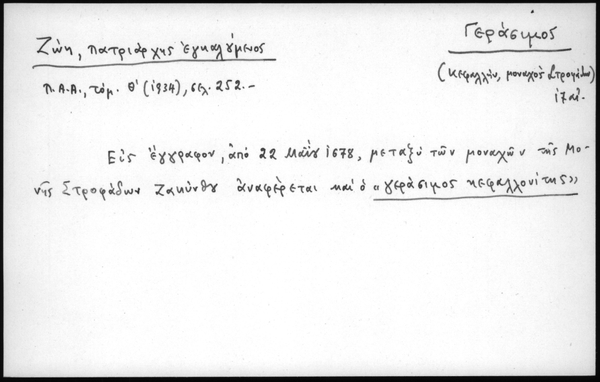 Ζώη, πατριάρχης ἐγκαλούμενος
Π.Α.Α., τόμ. Θ' (1934), σελ. 252.-
Γεράσιμος
(κεφαλλήν, μοναχὸς Στροφάδων)
17 αἰ.
Εἰς ἔγγραφον, ἀπό 22 Μαΐου 1678, μεταξὺ τῶν μοναχῶν τῆς Μο-
νῆς Στροφάδων Ζακύνθου ἀναφέρεται καὶ ὁ «γεράσιμος κεφαλλονίτης»